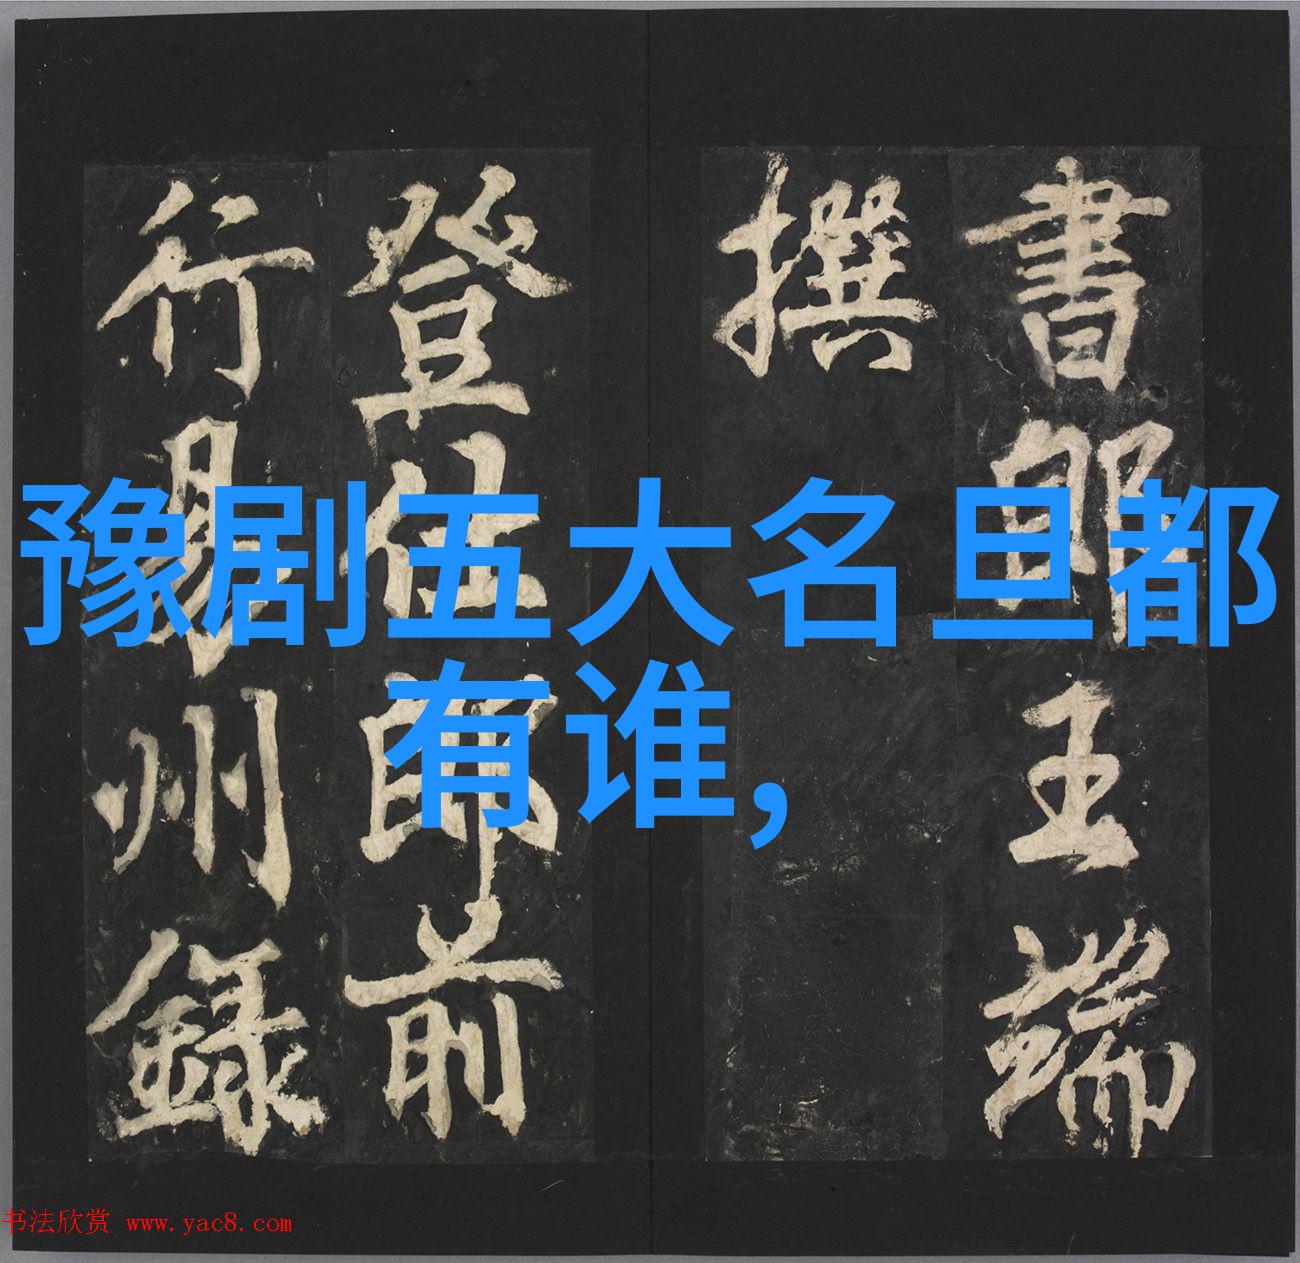 豫剧五大名旦都
有谁,
書郎王端
撰
登仕郎前
行易州錄
书法欣赏 www.yac8.com